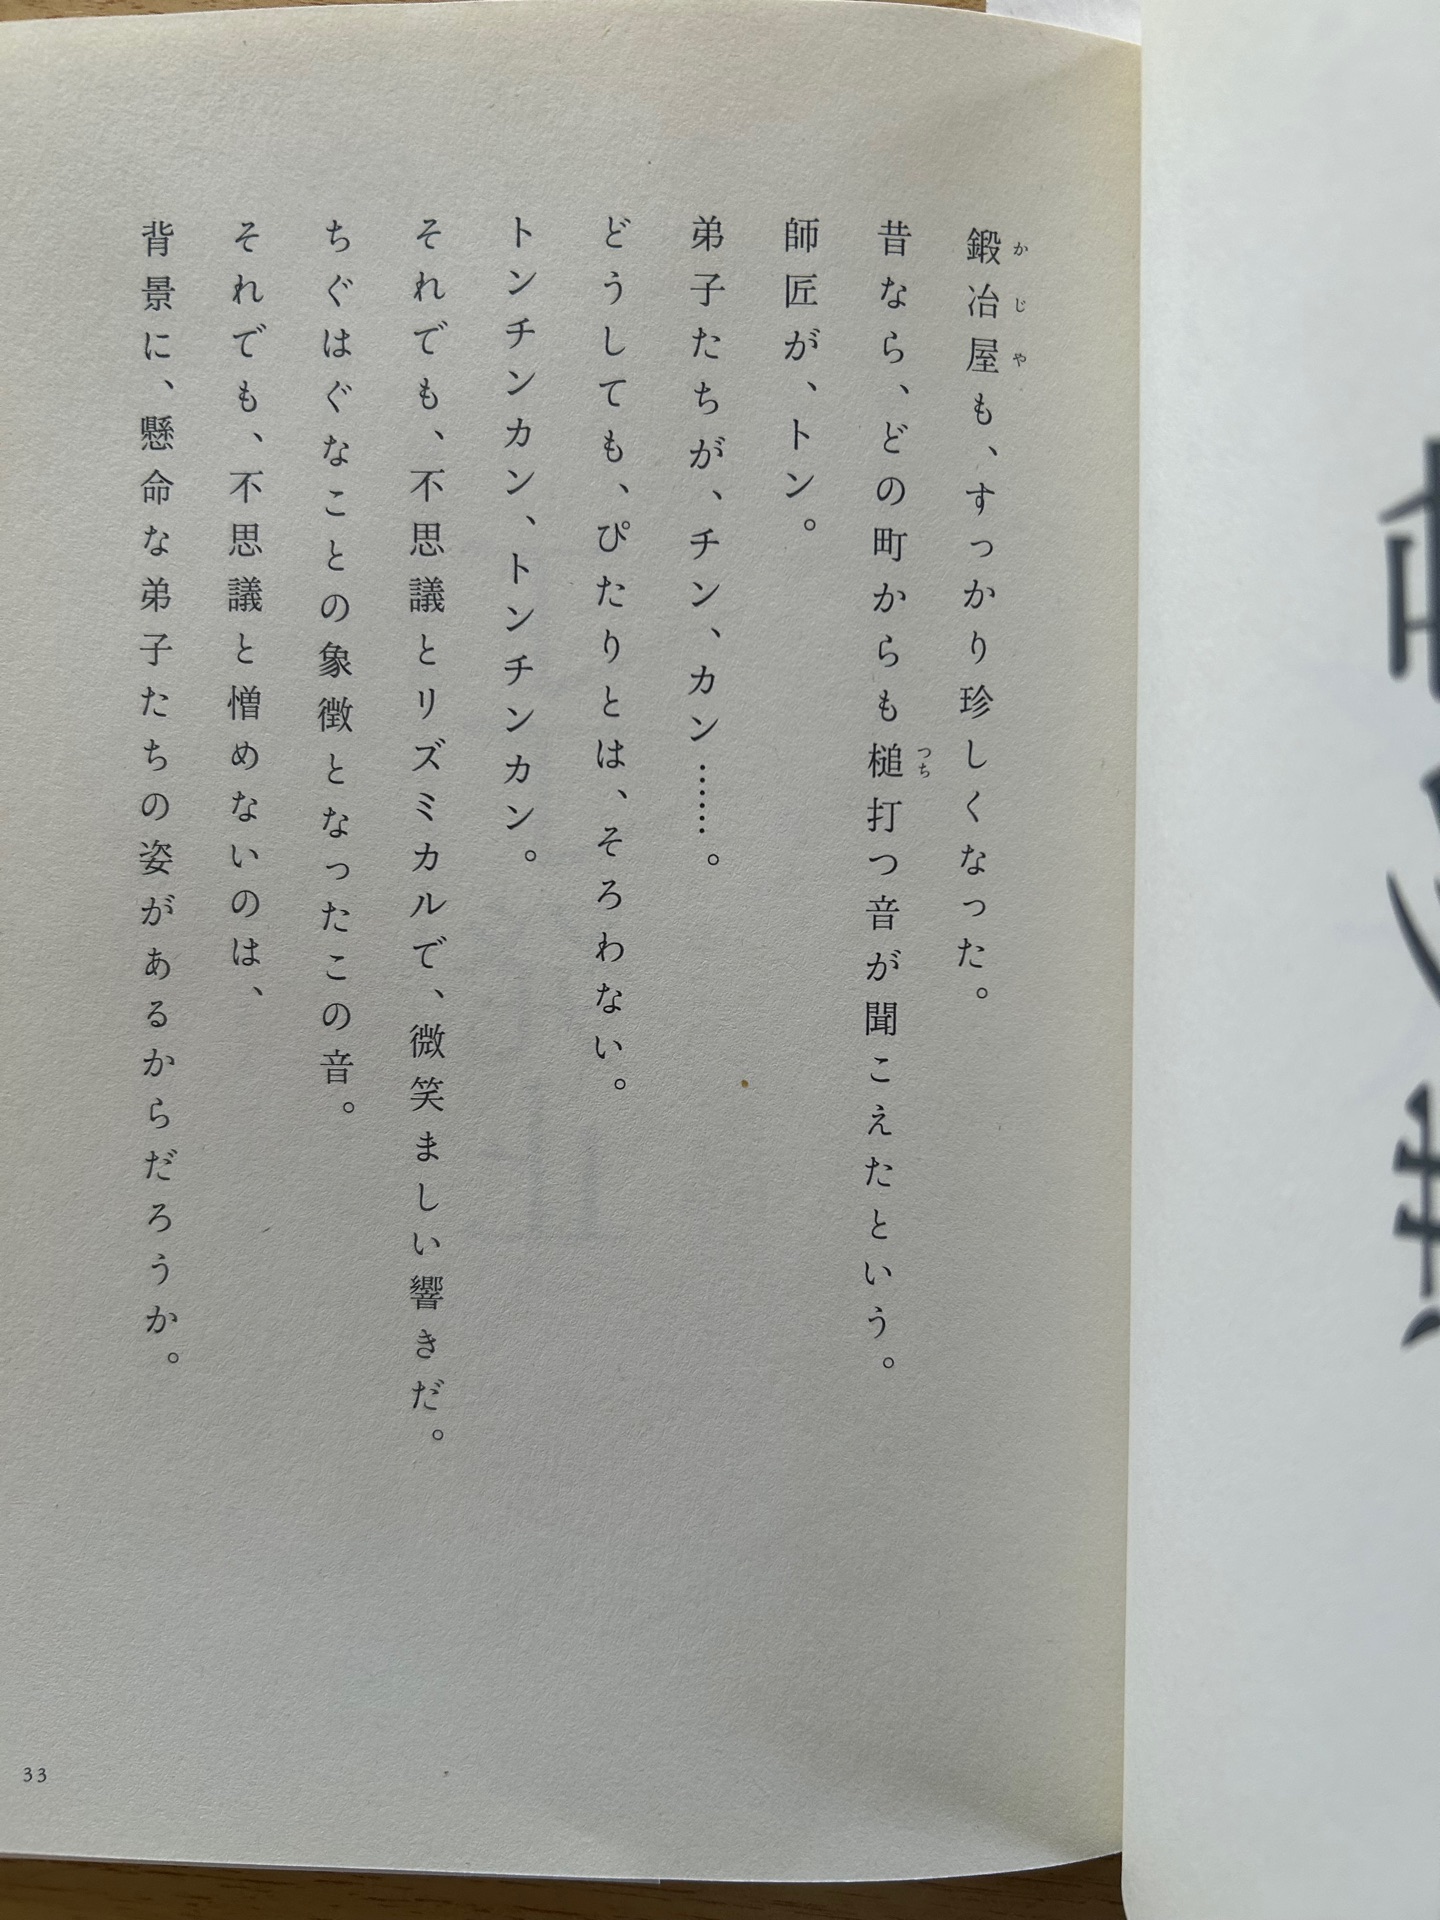 鍛冶屋も、すっかり珍しくなった。
かじや
昔なら、どの町からも槌打つ音が聞こえたという。
つち
師匠が、トン。
弟子たちが、チン、カン……。
どうしても、ぴたりとは、そろわない。
トンチンカン、トンチンカン。
それでも、不思議とリズミカルで、微笑ましい響きだ。
ちぐはぐなことの象徴となったこの音。
それでも、不思議と憎めないのは、
背景に、懸命な弟子たちの姿があるからだろうか。
33